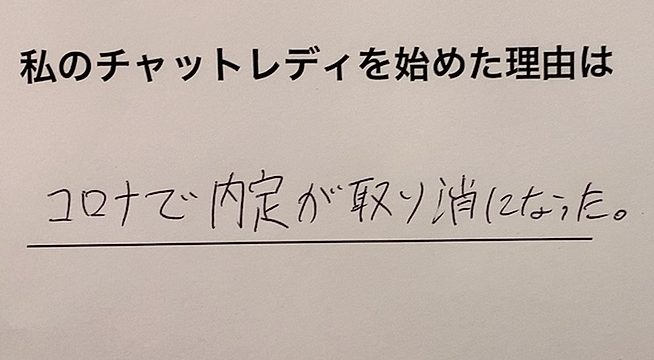 私のチャットレディを始めた理由は
コロナで内定が取り消になった。